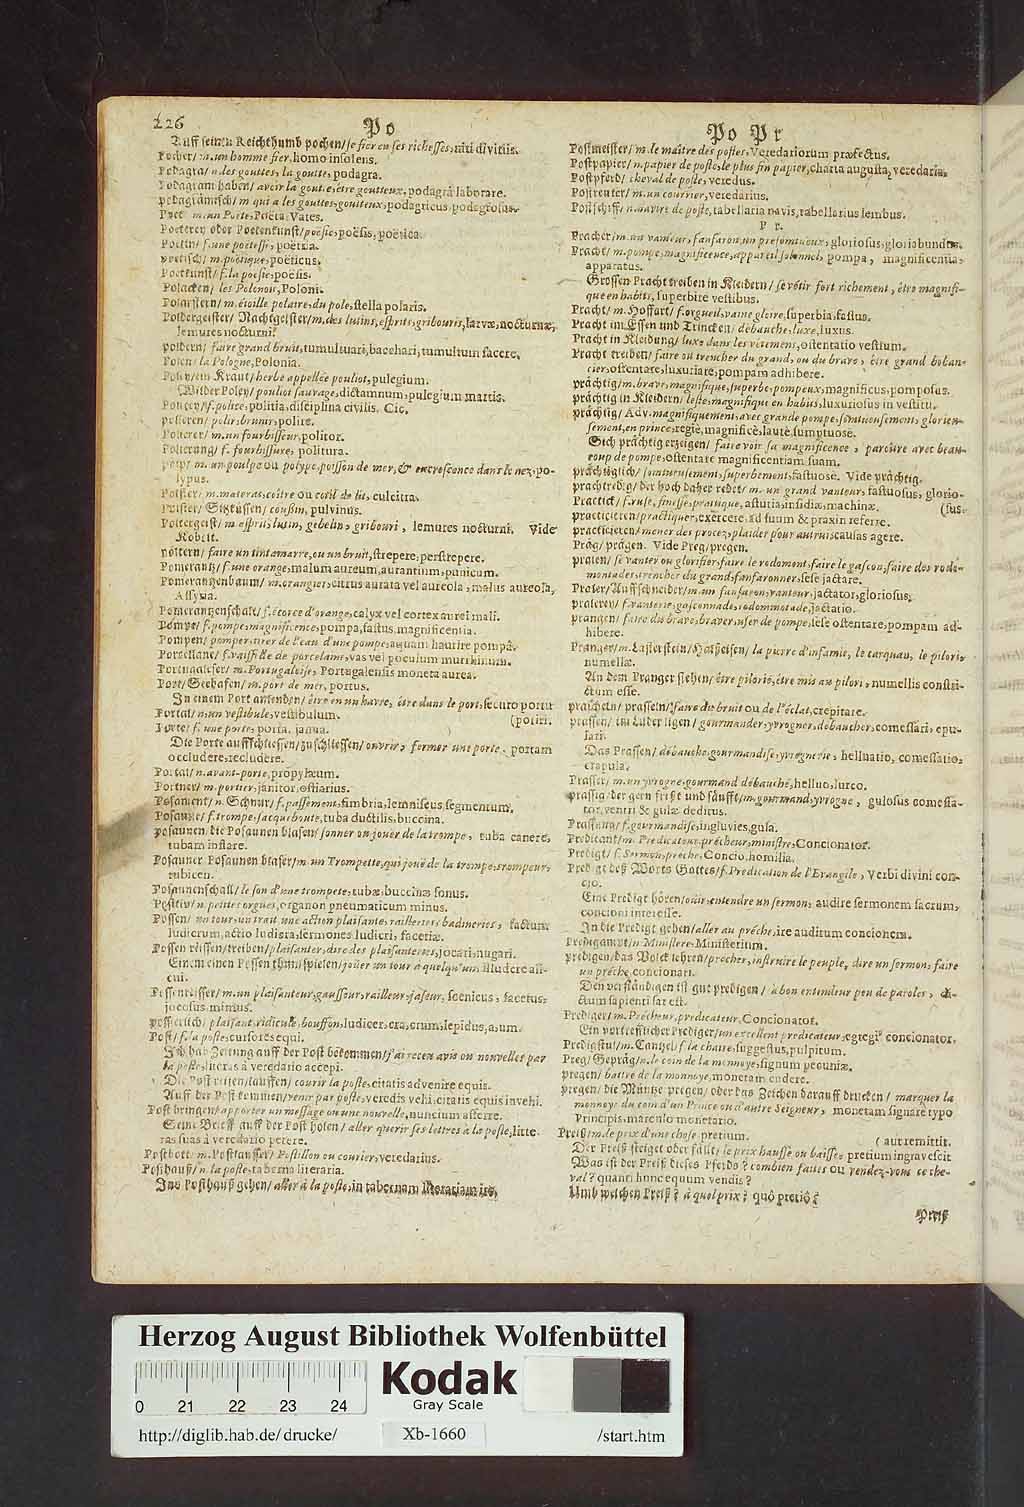 226
Po
Auff seinen Reichthumb pochen/ se fier en ses richesses, niti divitiis.
Pocher/ m. un homme fier, homo insolens.
Podagra/ n. des gouttes, la goutte, podagra.
Podagram haben/ avoir la goutte, être goutteux, podagrâ laborare.
podagramisch/ m qui a les gouttes, goutteux, podagricus, podagrosus.
Poet m. un Poëte, Poëta, Vates.
Poeterey oder Poetenkunst/ poësie, poësis, poëtica.
Poetin/ f. une poëtesse, poëtria.
poetisch/ m. poëtique, poëticus.
Poetkunst/ f. la poësie, poësis.
Polacken/ les Polonois, Poloni.
Polarstern/ m. étoille polaire, du pole, stella polaris.
Poldergeister/ Nachtgeister/ m. des lutins, esprits, gribouris, larvæ, nocturnæ,
lemures nocturni.
poldern/ faire grand bruit, tumultuari, bacchari, tumultum facere.
Polen/ la Pologne, Polonia.
Poley/ ein Kraut/ herbe appellée pouliot, pulegium.
Wilder Poley/ pouliot sauvage, dictamnum, pulegium martis.
Policey/ f. police, politia, disciplina civilis. Cic.
polieren/ polir, brunir, polire.
Polierer/ m. un fourbisseur, politor.
Polierung/ f. fourbissure, politura.
Polyp/ m. un poulpe ou polype, poisson de mer, & excroscence dans le nez, po-
lypus.
Polster/ m. materas, coître ou coëtil de lit, culcitra.
Polster/ Sitzküssen/ coussin, pulvinus.
Poltergeist/ m. esprit, lutin, gobelin, gribouri, lemures nocturni. Vide
Kobelt.
poltern/ faire un tintamarre, ou un bruit, strepere, perstrepere.
Pomerantz/ f. une orange, malum aureum, aurantium, punicum.
Pomerantzenbaum/ m. oranger, citrus aurata vel aureola, malus aureola,
Assyria.
Pomerantzenschale/ f. écorce d'orange, calyx vel cortex aurei mali.
Pompe/ f. pompe, magnificence, pompa, fastus, magnificentia.
Pompen/ pomper, tirer de l'eau d'une pompe, aquam haurire pompâ.
Porcellane/ f. vaisselle de porcelaine, vas vel poculum murrhinum.
Portugaleser/ m. Portugaloise, Portugalensis moneta aurea.
Port/ Seehafen/ m. port de mer, portus.
In einem Port anlenden/ être en un havre, être dans le port, securo portu
(potiri.
Portal/ n. un vestibule, vestibulum.
Porte/ f. une porte, porta, janua.
Die Porte auffschliessen/ zuschliessen/ ouvrir, fermer une porte, portam
occludere, recludere.
Portal/ n. avant-porte, propylæum.
Portner/ m. portier, janitor, ostiarius.
Posament/ n. Schnur/ f. passement, fimbria, lemniscus, segmentum.
Posaune/ f. trompe, sacqueboute, tuba ductilis, buccina.
posaunen, die Posaunen blasen/ sonner ou jouer de la trompe, tuba canere,
tubam inflare.
Posauner Posaunen blaser/ m. un Trompette, qui joue de la trompe, trompeur,
tubicen.
Posaunenschall/ le son d'une trompete, tubæ, buccinæ sonus.
Positiv/ n. petites orgues, organon pneumaticum minus.
Possen/ un tour, un trait, une action plaisante, railleries, badineries, factum
ludicrum, actio ludicra, sermones ludicri, facetiæ.
Possen reissen/ treiben/ plaisanter, dire des plaisanteries, jocari, nugari.
Einem einen Possen thun/ spielen/ jouer un tour à quelqu'un, illudere ali-
cui.
Possenreisser/ m. un plaisanteur, gausseur, railleur, jaseur, scenicus, facetus,
jocosus, mimus.
possierlich/ plaisant, ridicule, bouffon, ludicer, cra, crum, lepidus, a, um.
Post/ f. la poste, cursores equi.
Ich hab Zeitung auff der Post bekommen/ j'ai receu avis ou nouvelles par
la poste, literas à veredario accepi.
Die Post reiten/ lauffen/ courir la poste, citatis advenire equis.
Auff der Post kommen/ venir par poste, veredis vehi, citatis equis invehi.
Post bringen/ apporter un message ou une nouvelle, nuncium afferre.
Seine Brieff auff der Post holen/ aller querir ses lettres à la poste, litte-
ras suas à veredario petere.
Postbott/ m. Postlauffer/ Postillon ou courier, veredarius.
Posthauß/ n. la poste, taberna literaria.
Ins Posthauß gehen/ aller à la poste, in tabernam literariam ire.
Po Pr
Postmeister/ m. le maître des postes, Veredariorum præfectus.
Postpapier/ n. papier de poste, le plus fin papier, charta augusta, veredaria.
Postpferd/ cheval de poste, veredus.
Postreuter/ m. un courrier, veredarius.
Postschiff/ n. navire de poste, tabellaria navis, tabellarius lembus.
Pr.
Pracher/ m. un vanteur, fanfaron, un presomtueux, gloriosus, gloriabundus.
Pracht/ m. pompe, magnificence, appareil solennel, pompa, magnificentia,
apparatus.
Grossen Pracht treiben in Kleidern/ se vêtir fort richement, être magnifi-
que en habits, superbire vestibus.
Pracht/ m. Hoffart/ f. orgueil, vaine gloire, superbia, fastus.
Pracht im Essen und Trincken/ débauche, luxe, luxus.
Pracht in Kleidung/ luxe dans les vétemens, ostentatio vestium.
Pracht treiben/ faire ou trencher du grand, ou du brave, être grand boban-
cier, ostentare, luxuriare, pompam adhibere.
prächtig/ m. brave, magnifique, superbe, pompeux, magnificus, pomposus.
prächtig in Kleidern/ leste, magnifique en habits, luxuriosus in vestitu.
prächtig/ Adv. magnifiquement, avec grande pompe, somtueusement, glorieu-
sement, en prince, regiè, magnificè, lautè, sumptuosè.
Sich prächtig erzeigen/ faire voir sa magnificence, paroître avec beau-
coup de pompe, ostentare magnificentiam suam.
prächtiglich/ somtueusement, superbement, fastuosè. Vide prächtig.
prachtredig/ der hoch daher redet/ m. un grand vanteur, fastuosus, glorio-
(sus.
Practick/ f. ruse, finesse, pratique, astutia, insidiæ, machinæ.
practicieren/ practiquer, exercere, ad suum & praxin referre.
practicieren/ mener des procez, plaider pour autrui, causas agere.
Präg/ prägen. Vide Preg/ pregen.
pralen/ se vanter ou glorifier, faire le rodomont, faire le gascon, faire des rodo-
montades, trencher du grand, fanfaronner, sese jactare.
Praler/ Auffschneider/ m. un fanfaron, vanteur, jactator, gloriosus.
pralerey/ f. vanterie, gasconnade, rodommotade, jactatio.
prangen/ faire du brave, braver, user de pompe, sese ostentare, pompam ad-
hibere.
Pranger/ m. Lasterstein/ Halßeisen/ la pierre d'infamie, le carquan, le pilori,
numellæ.
An dem Pranger stehen/ être piloris, être mis au pilori, numellis constri-
ctum esse.
praschein/ prasseln/ faire du bruit ou de l'éclat, crepitare.
prassen/ im Luder ligen/ gourmander, yvrogner, débaucher, comessari, epu-
lari.
Das Prassen/ débauche, gourmandise, yvrognerie, helluatio, comessatio,
crapula.
Prasser/ m. un yvrogne, gourmand débauché, helluo, lurco.
prassig/ der gern frißt und säufft/ m. gourmand, yvrogne, gulosus comessa-
tor, ventri & gulæ deditus.
Prassung/ f. gourmandise, ingluvies, gula.
Predicant/ m. Predicateur, précheur, ministre, Concionator.
Predigt/ f. Sermon, préche, Concio, homilia.
Predigt deß Worts Gottes/ f. Predication de l'Evangile, Verbi divini con-
cio.
Eine Predigt hören/ ouir, entendre un sermon, audire sermonem sacrum,
concioni interesse.
In die Predigt gehen/ aller au préche, ire auditum concionem.
Predigampt/ n. Ministere, Ministerium.
predigen/ das Volck lehren/ precher, instruire le peuple, dire un sermon, faire
un préche, concionari.
Den verständigen ist gut predigen/ à bon entendeur peu de paroles, di-
ctum sapienti sat est.
Prediger/ m. Précheur, predicateur, Concionator.
Ein vortrefflicher Prediger/ un excellent predicateur, egregi9 concionator.
Predigstul/ m. Cantzel/ f. la chaire, suggestus, pulpitum.
Preg/ Gepräg/ n. le coin de la monnoye, signum pecuniæ.
pregen/ battre de la monnoye, monetam cudere.
pregen/ die Müntze pregen/ oder das Zeichen darauff drucken/ marquer la
monnoye du coin d'un Prince ou d'autre Seigneur, monetam signare typo
Principis, marculo monetario.
Preiß/ m. le prix d'une chose, pretium.
(aut remittit.
Der Preiß steiget oder fällt/ le prix hausse ou baisse, pretium ingravescit
Was ist der Preiß dieses Pferds? combien faites ou vendez-vous ce che-
val? quanti hunc equum vendis?
Umb welchen Preiß? à quel prix? quô pretiô?
Preiß
Herzog August Bibliothek Wolfenbüttel
Kodak
Gray Scale
0 21 22 23 24
http://diglib.hab.de/drucke/
Xb-1660
/start.htm